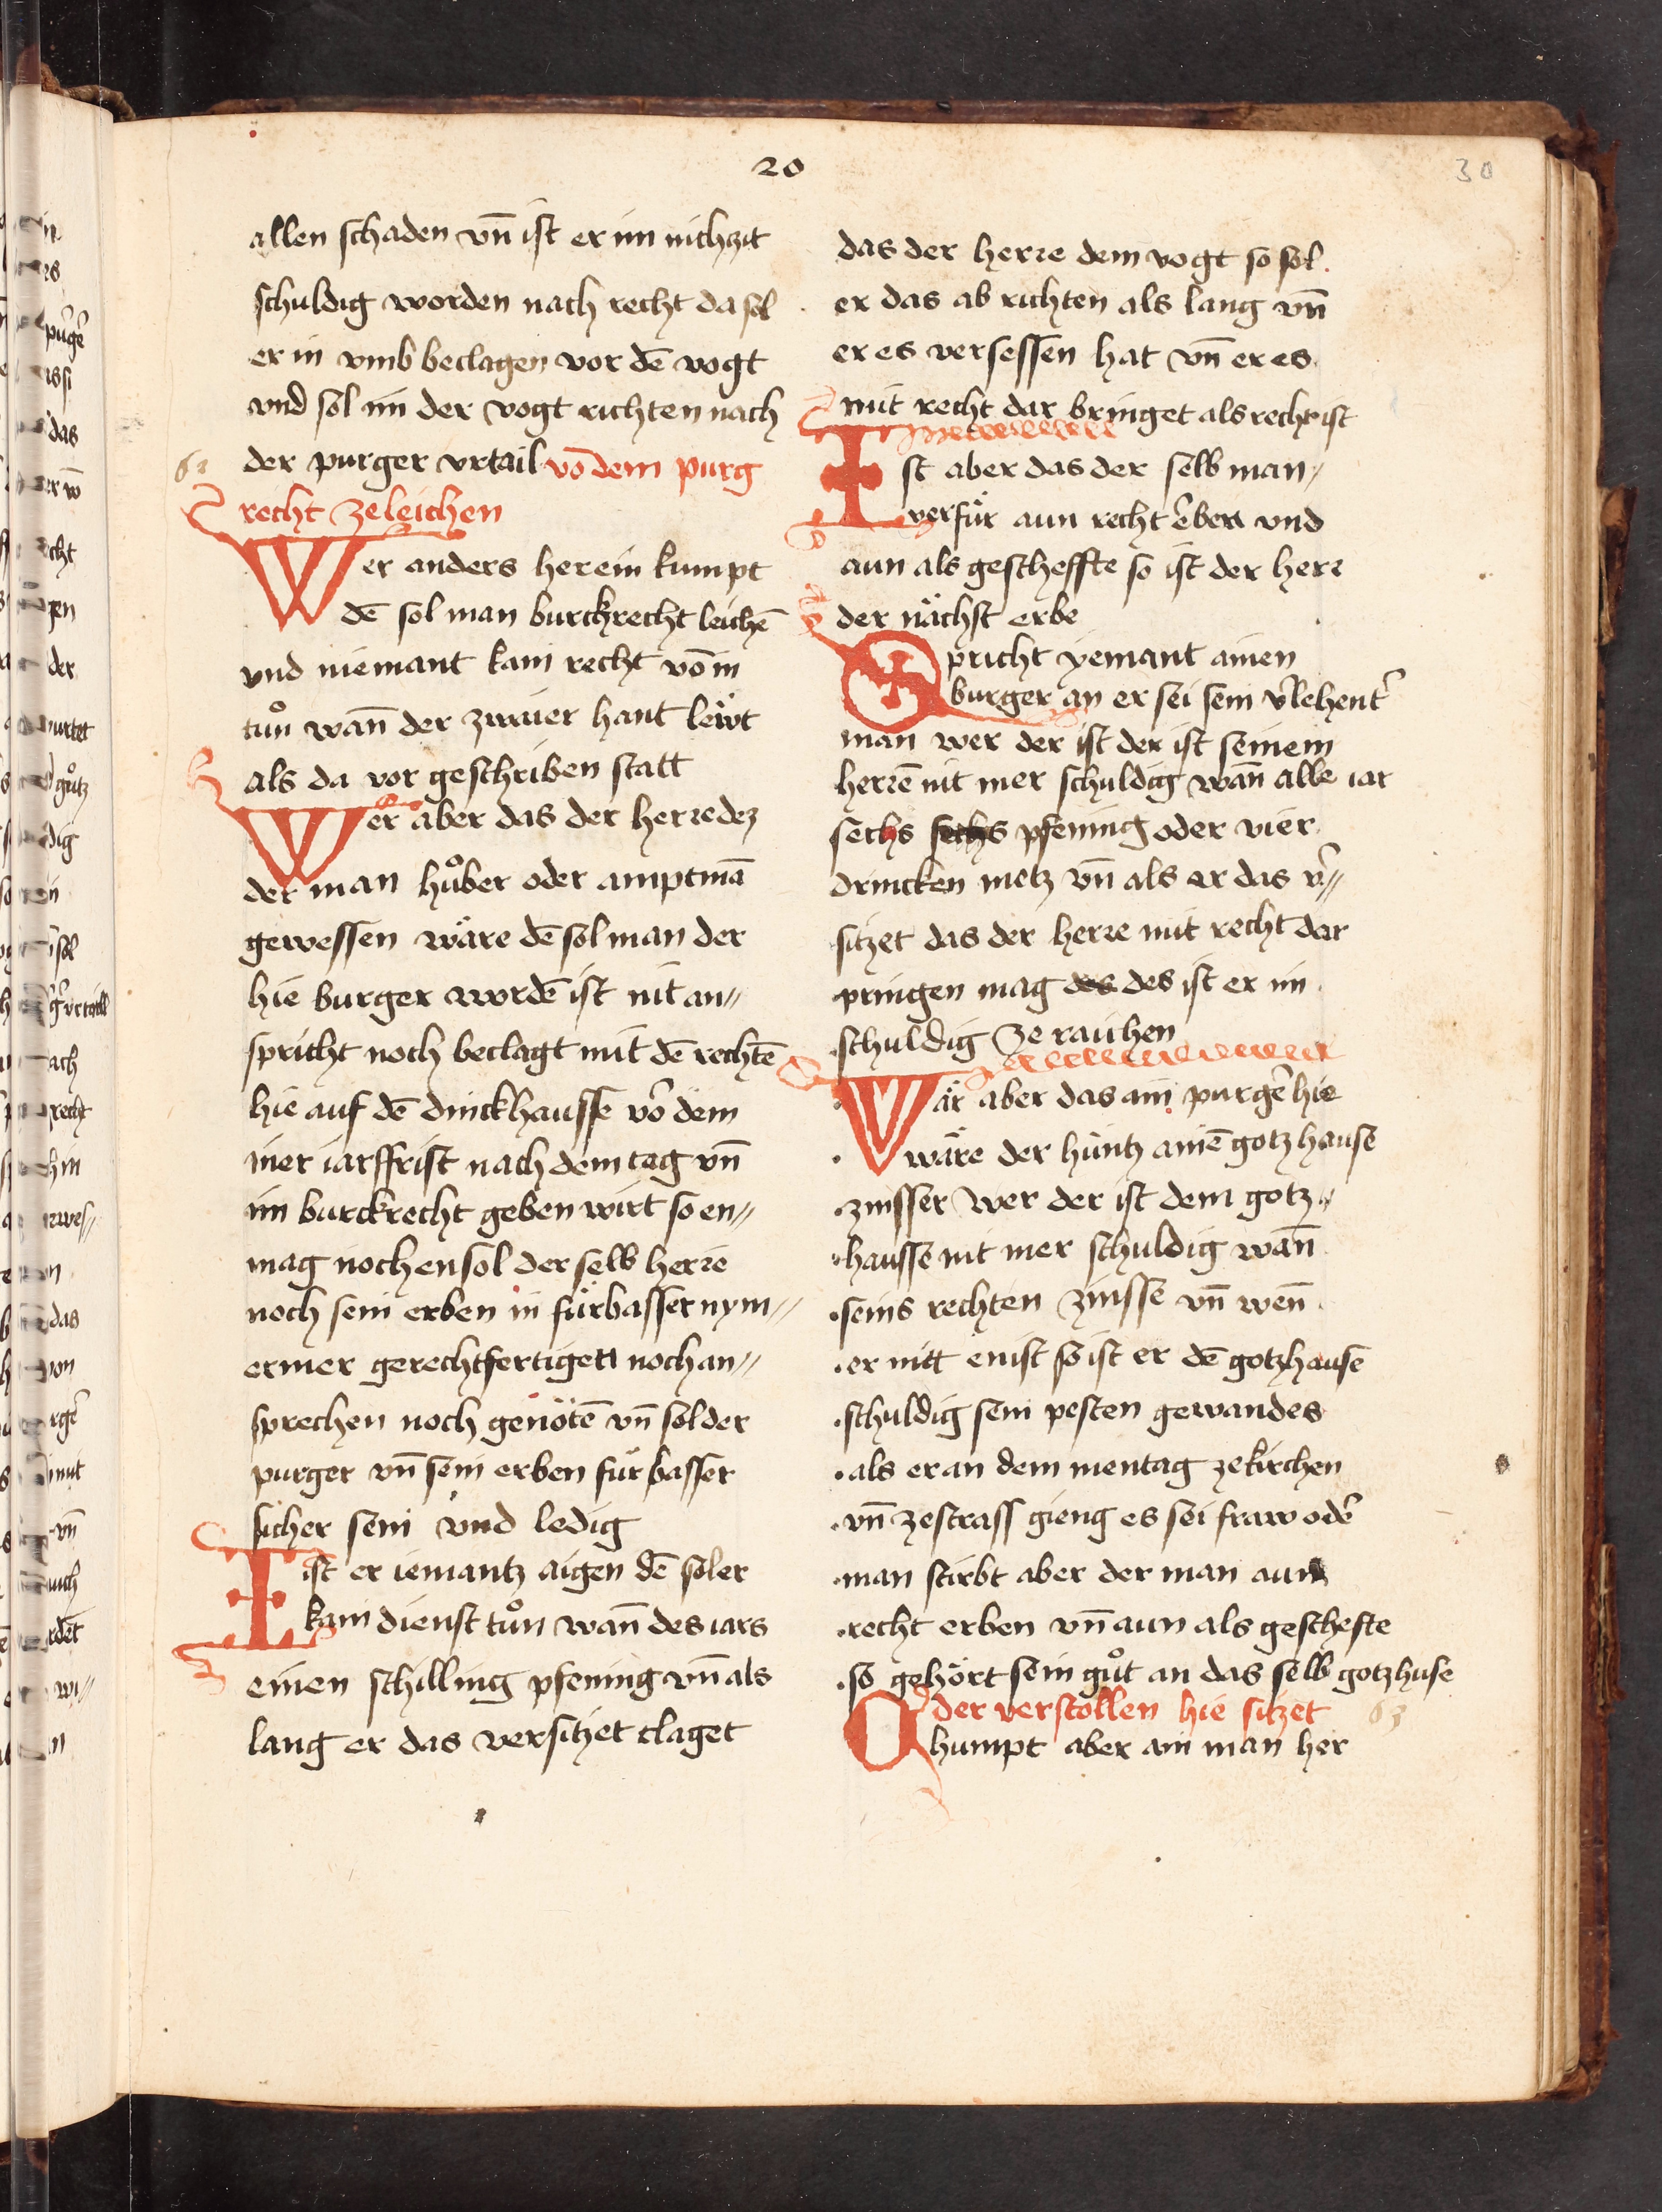 20
30
allen schaden vn̄ ist er im nichzit
schuldig worden nach recht da sol
er in vmb beclagen vor dē vogt
vnd sol im der vogt richten nach
der purger vrtail vō dem purg
recht ze leichen
Wer anders herein kumpt
dē sol man burckrecht leichē
vnd niemant kain recht vō in
tůn wan̄ der zwaier hant lewt
als da vor geschriben statt
Wer aber das der herre dez
der man hůber oder amptmā
gewessen wäre dē sol man der
hie burger wordē ist nit an〃
spricht noch beclagt mit dē rechtē
hie auf dē dinckhausse vō dem
iner iarffrist nach dem tag vn̄
im burckrecht geben wirt so en〃
mag noch ensol der selb herre
noch sein erben in fürbasser nym〃
ermer gerechtfertigen noch an〃
sprechen noch genötē vn̄ sol der
purger vn̄ sein erben fürbasser
sicher sein vnd ledig
Ist er iemantz aigen dē sol er
kain dienst tůn wan̄ des iars
einen schilling pfening vn̄ als
lang er das versitzet claget
das der herre dem vogt so sol
er das ab richten als lang vn̄
er es versessen hat vn̄ er es
mit recht dar bringet als recht ist
Ist aber das der selb man
verfür aun recht erben vnd
aun als gescheffte so ist der herr
der nächst erbe
Spricht yemant ainen
burger an er sei sein v̉lehent̉
man wer der ist der ist seinem
herrē nit mer schuldig wan̄ alle iar
sechs sechs pfening oder vier
drincken metz vn̄ als er das v̉〃
sitzet das der herre mit recht dar
pringen mag des des ist er im
schuldig ze raichen
Wär aber das ain purg̉ hie
wäre der hüntz ainē gotzhause
zinsser wer der ist dem gotz〃
hausse nit mer schuldig wan̄
seins rechten zinsse vn̄ wen̄
er nitt enist so ist er dē gotzhause
schuldig sein pesten gewandes
als er an dem mentag ze kirchen
vn̄ ze strass gieng es sei fraw od̉
man stirbt aber der man aun
recht erben vn̄ aun als geschefte
so gehört sein gůt an das selb gotzhuse
der verstollen hie sitzet
humpt aber ain man her